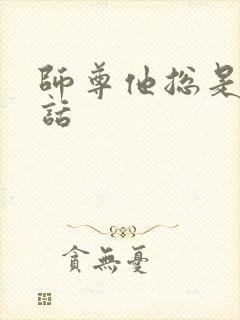 師尊他總是
話
貪無憂